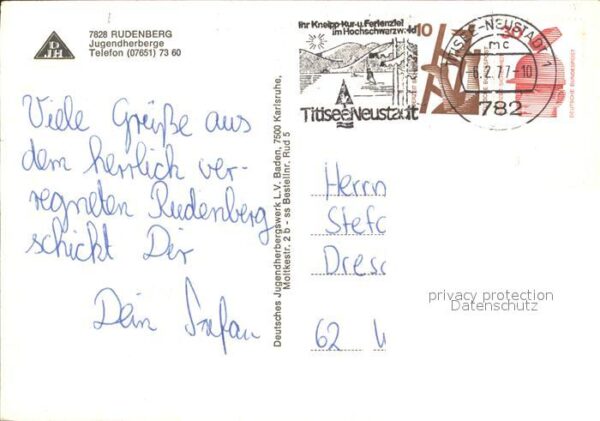 7828 RUDENBERG
Jugendherberge
Telefon (07651) 73 60
DJH
Viele Grüße aus
dem herrlich ver-
regneten Rudenberg
schickt Dir
Dein Stefan
Deutsches Jugendherbergswerk L.V. Baden, 7500 Karlsruhe,
Moltkestr. 2 b - ss Bestellnr. Rud 5
Ihr Kneipp-Kur-u. Ferienziel
im Hochschwarzwald
Titisee Neustadt
10
TITISEE-NEUSTADT 1
mc
6.2.77-10
782
DEUTSCHE BUNDESPOST
Herrn
Stefa
Dresd
62 W
privacy protection
Datenschutz